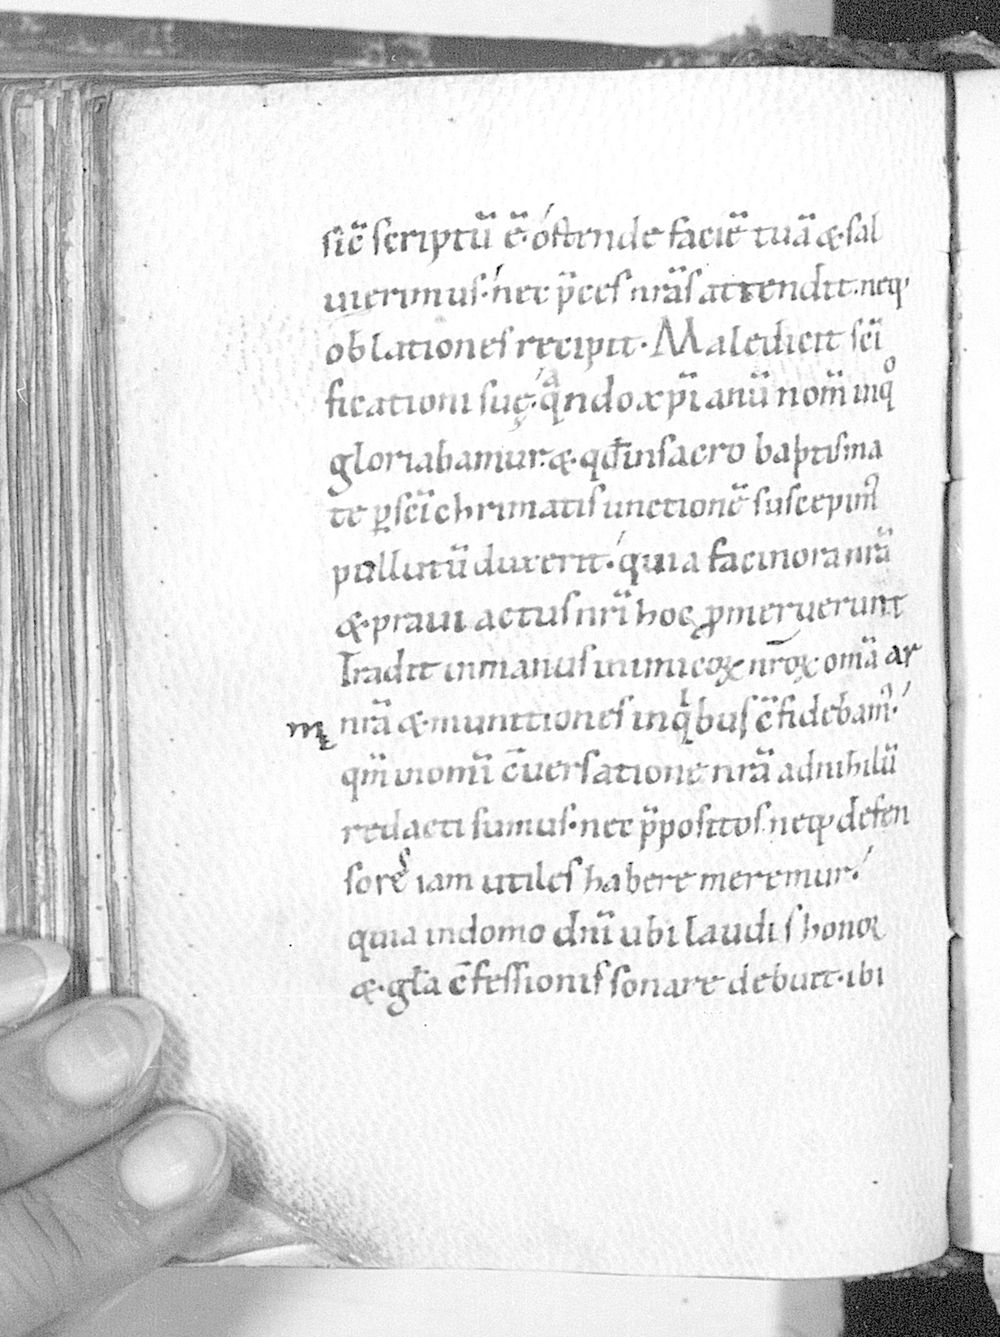 sic̄ scriptū ē· ostende faciē tuā & sal
uierimus· nec p̄ces nr̄as attendit· neq;
oblationes recipit· Maledicit sc̄i
ficationi suę· qᵃndo xp̄ianū nom̄ inqͦ
gloriabamur· & qđ in sacro baptisma
te ꝑ sc̄i chrimatis unctionē suscepim᷒
pollutū duxerit· quia facinora nr̄a
& praui actus nr̄i hoc ꝓmeruerunt
Tradit in manus inimicoꝝ nr̄oꝝ om̄ia ar
ma nr̄a & munitiones in qⁱbus c̄fidebam᷒·
qm̄ in om̄i c̄uersatione nr̄a ad nihilū
redacti sumus· nec p̄positos neq; defen
sores iam utiles habere meremur·
quia in domo dn̄i ubi laudis honor
& gl̄a c̄fessionis sonare debuit· ibi